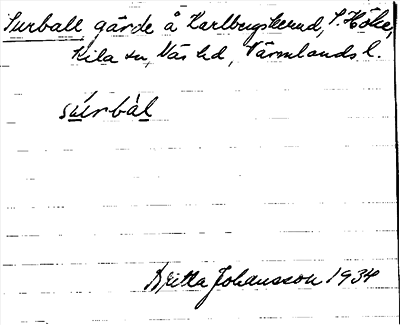 Surball gärde å Karlbergskerud, S. Höke,
Kila sn, Näs hd, Värmlands l.
súrbàl
Britta Johansson 1934